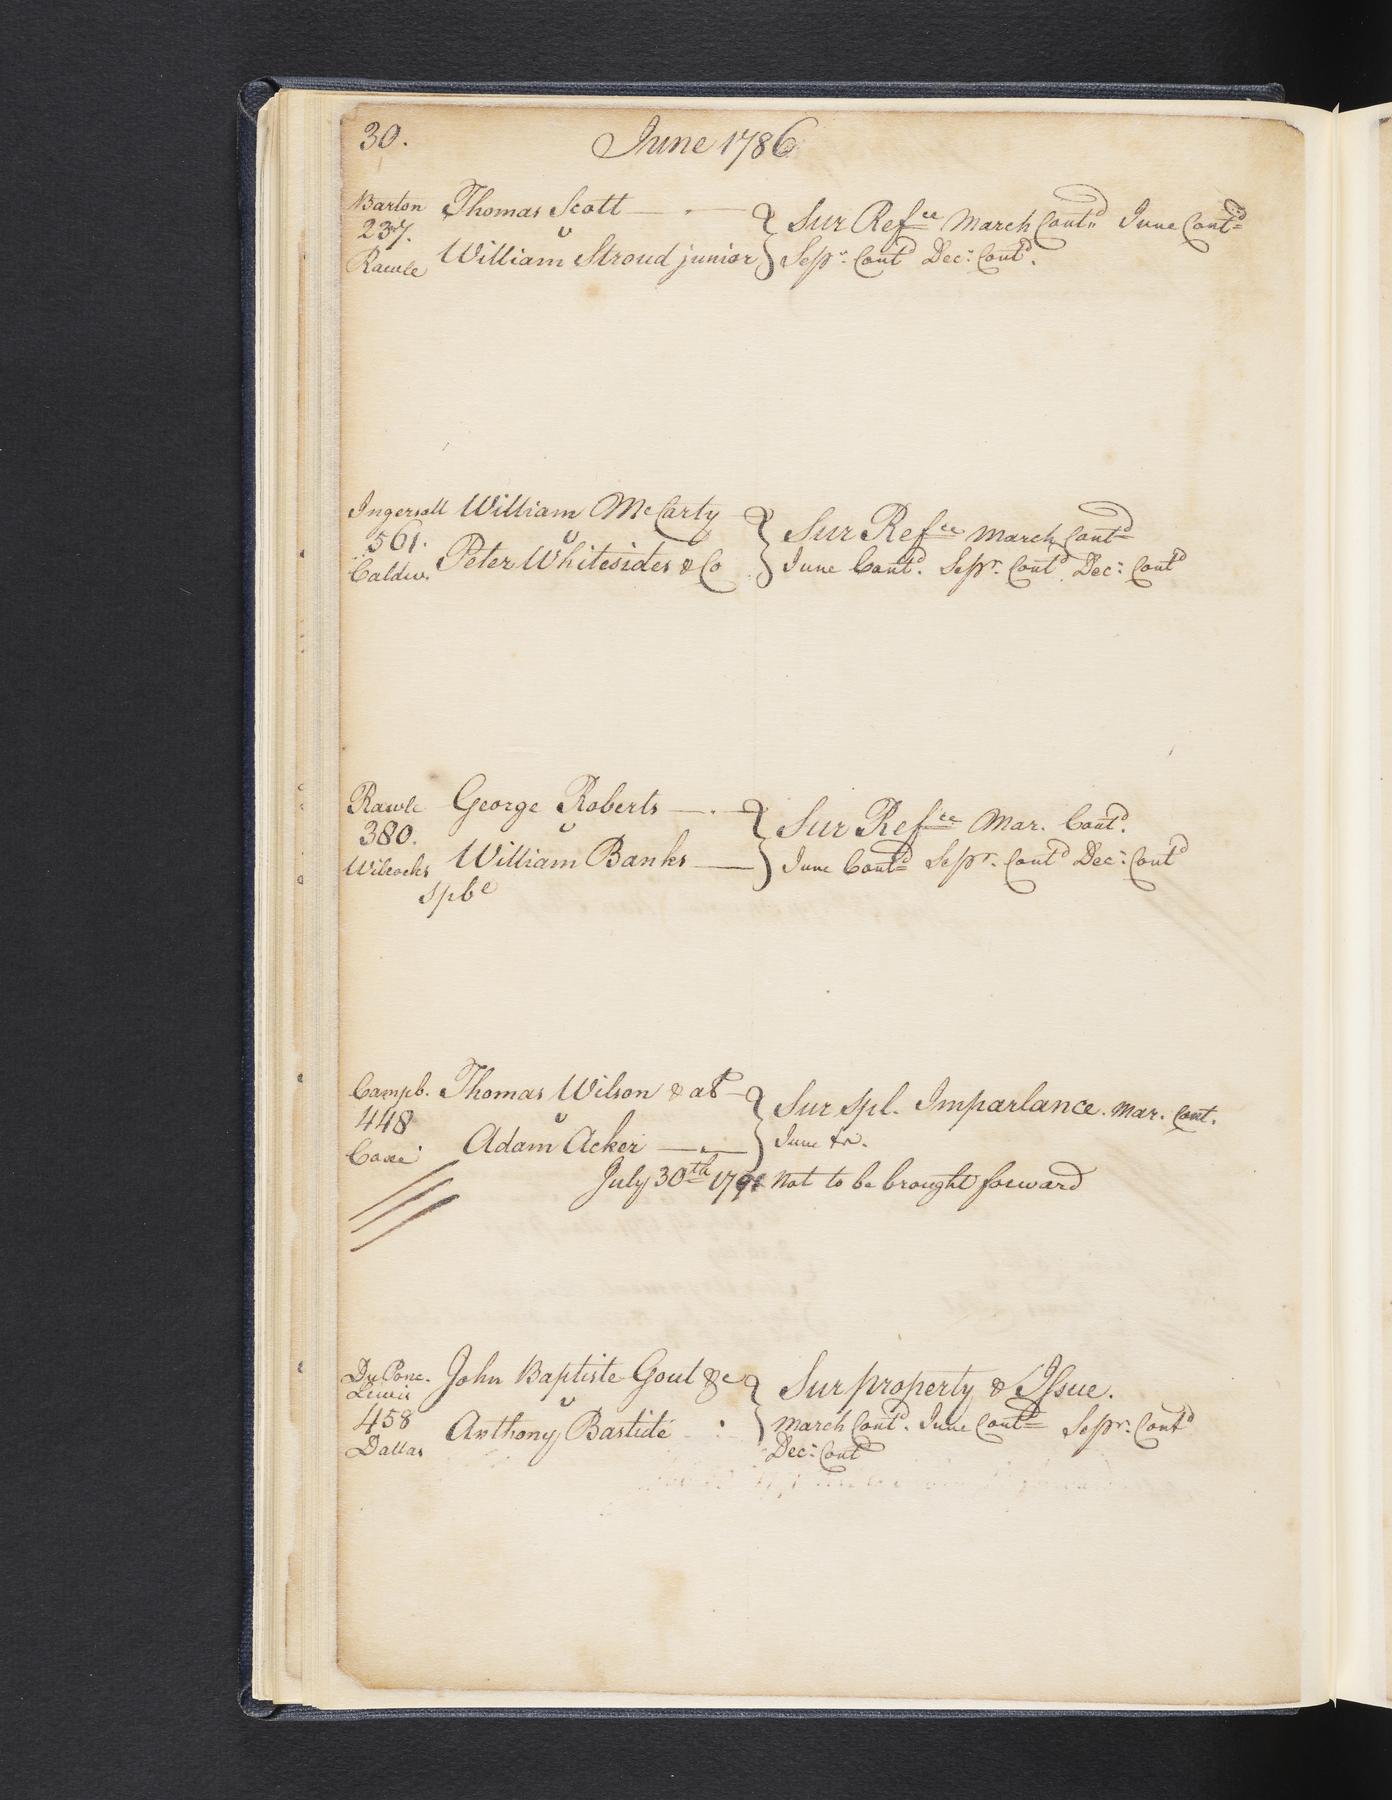 30. June 1786
Barton Thomas Scott
237. v
Rawle William Stroud junior
Sur Refce March Contd June Contd
Sepr. Contd Dec: Contd.
Ingersoll William McCarty
561. v
Caldw. Peter Whitesides & Co
Sur Refce March Contd
June Contd. Sepr. Contd Dec: Contd
Rawle George Roberts
380. v
Wilcocks William Banks
spbe
Sur Refce Mar. Contd.
June Contd Sepr. Contd Dec: Contd
Campb. Thomas Wilson & al
448 v
Coxe Adam Acker
Sur spl. Imparlance. Mar. Cont.
June
July 30th 1791 not to be brought forward
DuPonc. John Baptiste Gout &c
Lewis v
458
Dallas Anthony Bastide
Sur property & Issue.
March Contd. June Contd Sepr. Contd
Dec: Contd